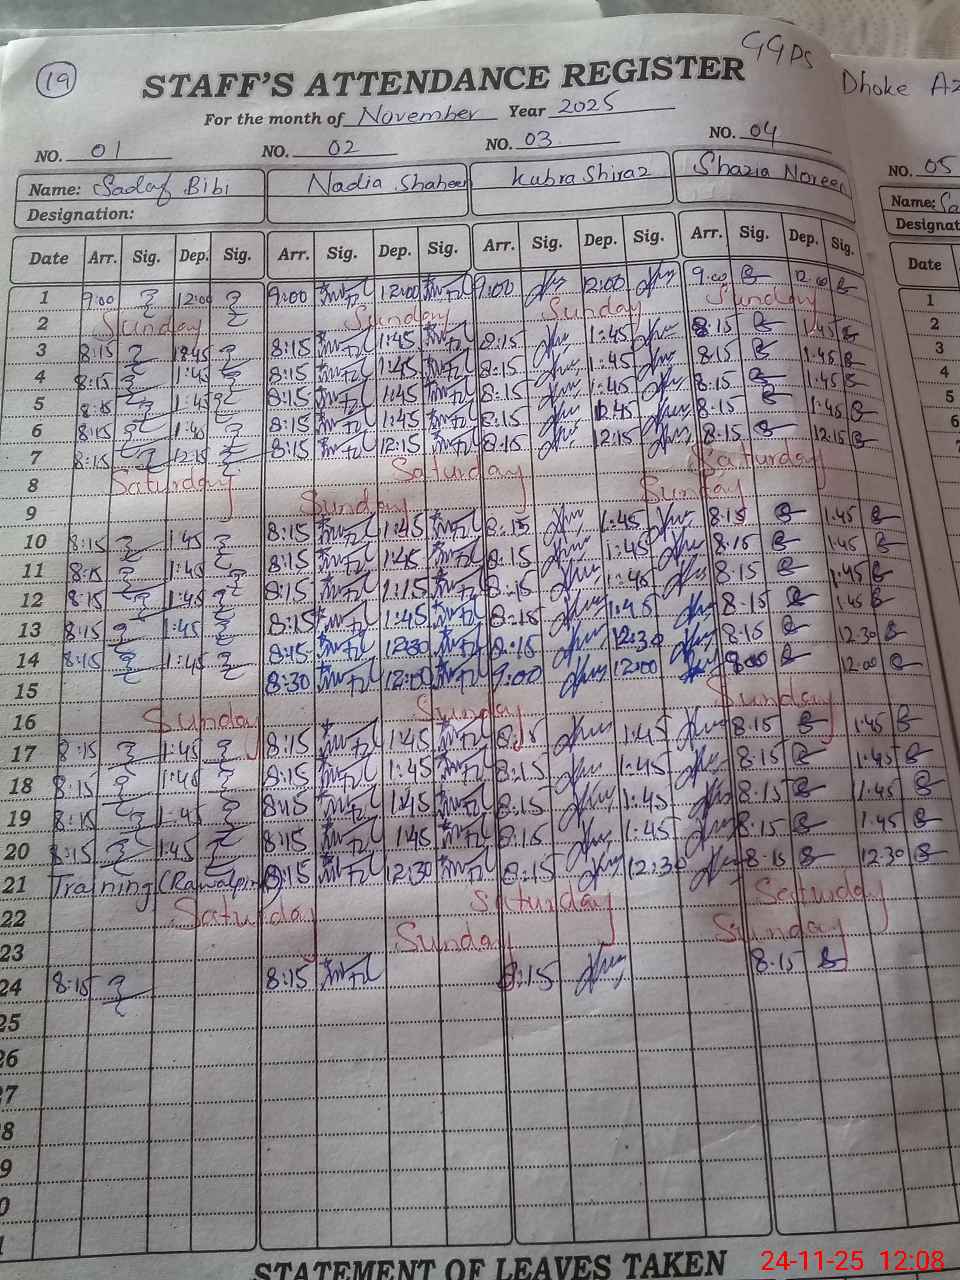 19
GGPS
STAFF'S ATTENDANCE REGISTER
Dhoke Az
For the month of November Year 2025
NO. 01 NO. 02 NO. 03 NO. 04
NO. 05
Name: Sadaf Bibi Nadia Shaheen Kubra Shiraz Shazia Noreen
Name: Sa
Designation:
Designat
Date Arr. Sig. Dep. Sig. Arr. Sig. Dep. Sig. Arr. Sig. Dep. Sig. Arr. Sig. Dep. Sig.
Date
1 9:00 12:00 9:00 12:00 9:00 12:00 9:00 12.00
1
2 Sunday Sunday Sunday Sunday
2
3 8:15 8:15 1:45 8:15 1:45 8:15 1.45
3
4 8:15 1:45 8:15 1:45 8:15 1:45 8:15 1.45
4
5 8:15 1:45 8:15 1:45 8:15 1:45 8:15 1.45
5
6 8:15 8:15 1:45 8:15 8:15 1.45
6
7 8:15 12:15 8:15 12:15 8:15 12:15 8:15 12.15
8 Saturday Saturday Saturday
9 Sunday Sunday
10 8:15 1:45 8:15 1:45 8:15 1:45 8:15 1.45
11 8:15 1:45 8:15 1:45 8:15 1:45 8:15 1.45
12 8:15 1:45 8:15 1:15 8:15 1:45 8:15 1.45
13 8:15 1:45 8:15 1:45 8:15 1:45 8:15 1.45
14 8:15 1:45 8:15 12:30 8:15 12:30 8:15 12.30
15 8:30 12:00 9:00 12:00 12.00
16 Sunday Sunday Sunday
17 8:15 1:45 8:15 1:45 8:15 1:45 8:15 1.45
18 8:15 1:45 8:15 1:45 8:15 1:45 8:15 1.45
19 8:15 1:45 8:15 1:45 8:15 1:45 8:15 1.45
20 8:15 1:45 8:15 1:45 8:15 1:45 8:15 1.45
21 Training (Rawalpindi) 8:15 12:30 8:15 12:30 8:15 12.30
22 Saturday Saturday Saturday
23 Sunday Sunday
24 8:15 8:15 8:15 8.15
25
26
7
8
9
0
STATEMENT OF LEAVES TAKEN
24-11-25 12:08